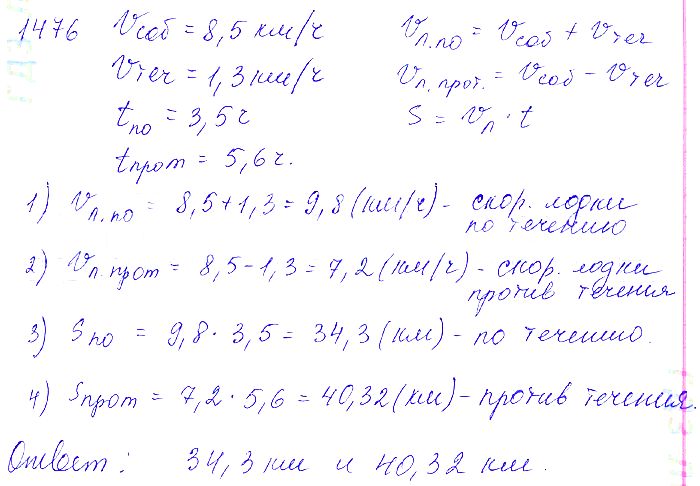 1476 Vсоб = 8,5 км/ч Vл.по = Vсоб + Vтеч
Vтеч = 1,3 км/ч Vл.прот. = Vсоб - Vтеч
tпо = 3,5 ч S = Vл · t
tпрот = 5,6 ч.
1) Vл.по = 8,5 + 1,3 = 9,8 (км/ч) - скор. лодки
по течению
2) Vл.прот = 8,5 - 1,3 = 7,2 (км/ч) - скор. лодки
против течения
3) Sпо = 9,8 · 3,5 = 34,3 (км) - по течению.
4) Sпрот = 7,2 · 5,6 = 40,32 (км) - против течения.
Ответ: 34,3 км и 40,32 км.